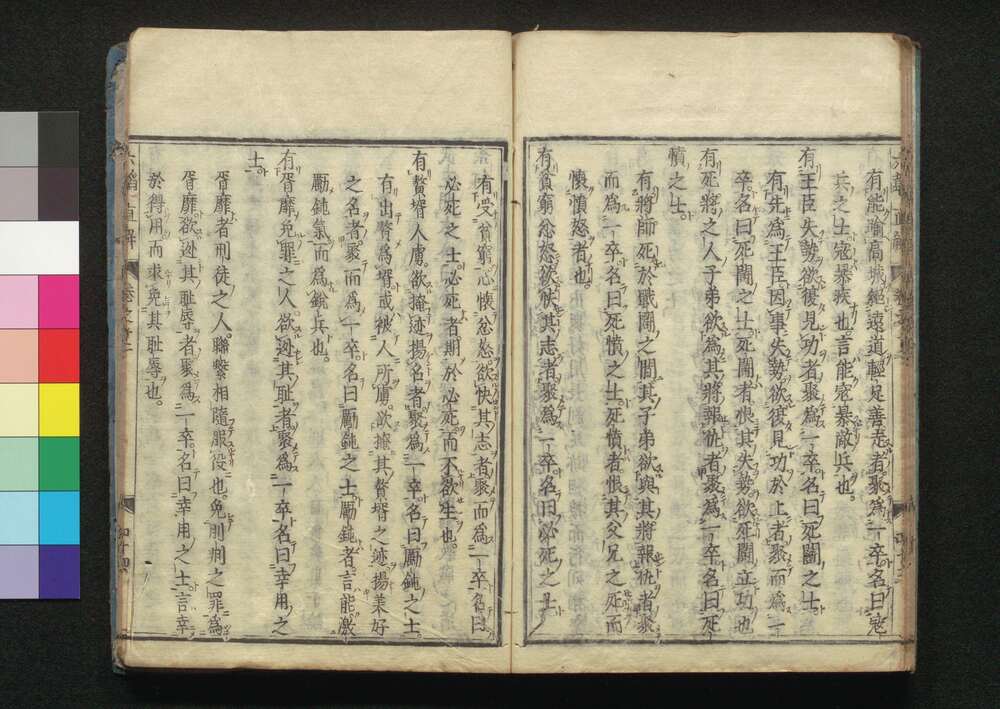 有能踰高城絕遠道輕足善走者聚爲一卒名曰寇
兵之士寇暴疾也言能寇暴敵兵也
有王臣失勢欲復見功者聚爲一卒名曰死鬭之士
有先爲王臣因事失勢欲復見功於上者聚而爲一
卒名曰死鬭之士死鬭者恨其失勢欲死鬭立功也
有死將之人子弟欲爲其將報仇者聚爲一卒名曰死
憤之士
有將師死於戰鬭之間其子弟欲與其將報仇者聚
而爲一卒名曰死憤之士死憤者恨其父兄之死而
懷憤怒者也
有貧窮忿怒欲快其志者聚爲一卒名曰必死之士
有受貧窮心懷忿怒欲快其志者聚而爲一卒名曰
必死之士必死者期於必死而不欲生也
有贅壻人虜欲掩迹揚名者聚爲一卒名曰勵鈍之士
有出贅爲壻或被人所虜欲掩其贅壻之迹揚美好
之名者聚而爲一卒名曰勵鈍之士勵鈍者言能激
勵鈍氣而爲銳兵也
有胥靡免罪之人欲逃其恥者聚爲一卒名曰幸用之
士
胥靡者刑徒之人聯繫相隨服役也免刑之罪爲
胥靡欲逃其恥辱者聚爲一卒名曰幸用之士言幸
於得用而求免其恥辱也